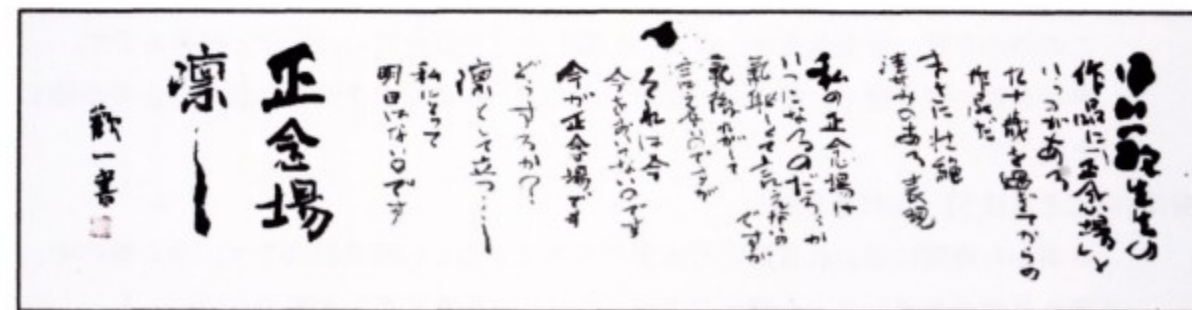 先生の
作品に「正念場」と
いうのがある
九十歳を過ぎてからの
作品だ
まさに壮絶
凄みのある表現
私の正念場は
いつになるのだろうか
気恥しくて言えないの
ですが
気後れがして
言えないのですが
それは今
今をおいてないのです
今が正念場です
どうするか?
凛として立つ……
私にとって
明日はないのです
正念場
凛
一書